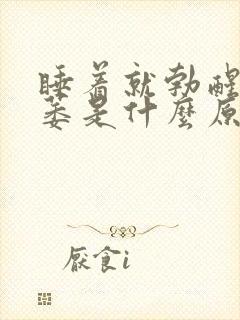 睡着就勃醒
萎是什麼原
厭食i